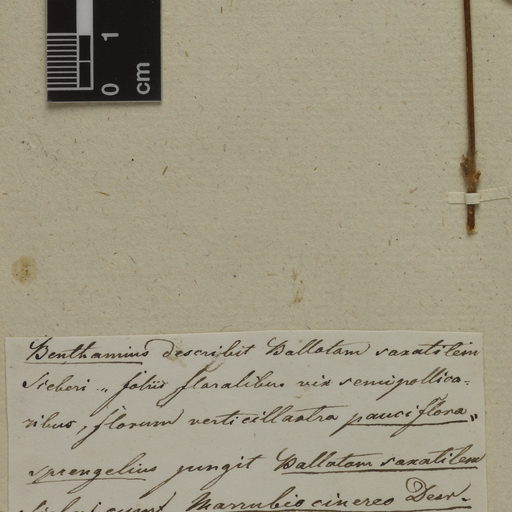 0 1
cm
Benthamius describit Ballotam saxatilem
Sieberi „ foliis floralibus vix semipollica-
ribus, florum verticillastra pauciflora„
Sprengelius jungit Ballotam saxatilem
Sieberi cum Marrubio cinereo Desr-